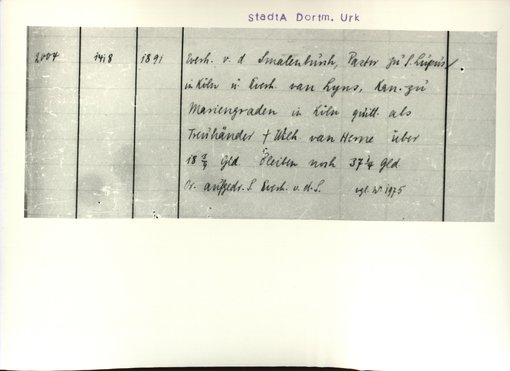 StadtA Dortm. Urk
2004 1418 1891 Everh. v. d Smalenburh, Pastor zu S. Lupus
in Köln u. Everh. van Lyns, Kan. zu
Mariengraden in Köln quitt. als
Treuhänder + Wilh. van Herne über
18 Gld. Bleiben noch 37 1/4 Gld
Or. aufgedr. S Everh. v. d. S. vgl. Nr 1975